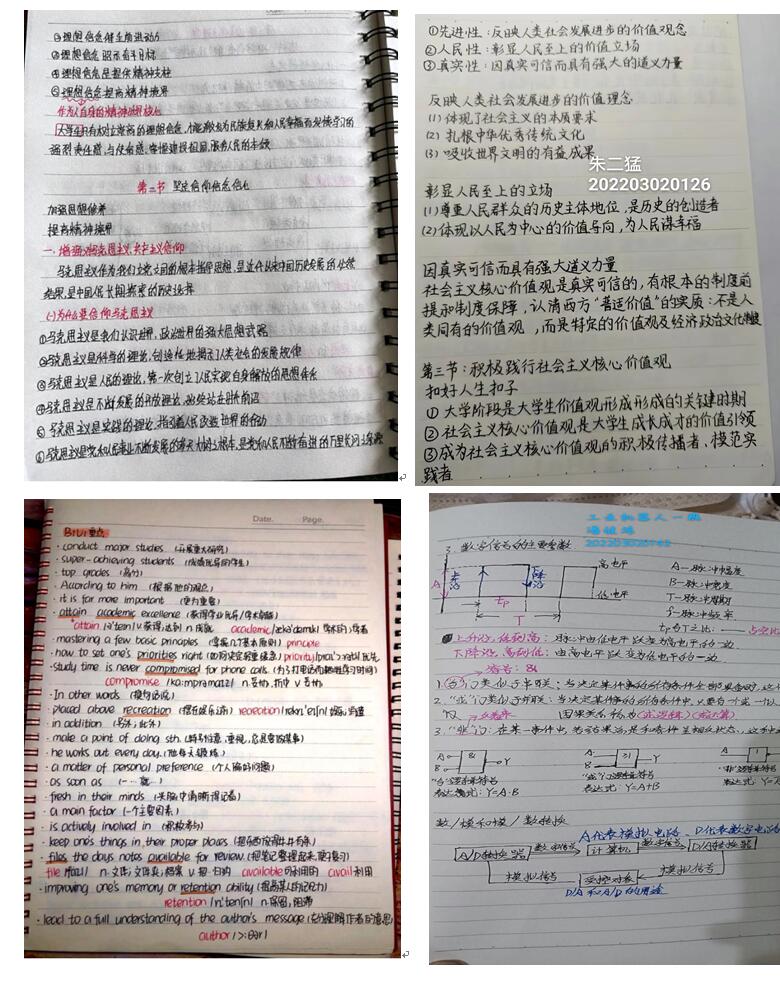 ②理想信念催生前进动力
③理想信念昭示奋斗目标
④理想信念提供精神支柱
⑤理想信念提高精神境界
作为人自身的精神世界核心
大学生只有树立崇高的理想信念，才能激发为民族复兴和人民幸福而发愤学习的
强烈责任感与使命感，掌握建设祖国、服务人民的本领
第二节 坚定信仰信念信心
加强思想修养
提高精神境界
一、增强对马克思主义、共产主义信仰
马克思主义作为我们立党立国的根本指导思想，是近代以来中国历史发展的必然
结果，是中国人民长期探索的历史选择
(一)为什么要信仰马克思主义
①马克思主义是我们认识世界，改造世界的强大思想武器
②马克思主义是科学的理论，创造性地揭示了人类社会的发展规律
③马克思主义是人民的理论，第一次创立了人民实现自身解放的思想体系
④马克思主义是不断发展的开放理论，始终站在时代前沿
⑤马克思主义是实践的理论，指引着人民改造世界的行动
①先进性：反映人类社会发展进步的价值观念
②人民性：彰显人民至上的价值立场
③真实性：因真实可信而具有强大的道义力量
反映人类社会发展进步的价值理念
(1) 体现了社会主义的本质要求
(2) 扎根中华优秀传统文化
(3) 吸收世界文明的有益成果
朱二猛
202203020126
彰显人民至上的立场
(1) 尊重人民群众的历史主体地位，是历史的创造者
(2) 体现以人民为中心的价值导向，为人民谋幸福
因真实可信而具有强大道义力量
社会主义核心价值观是真实可信的，有根本的制度前
提和制度保障，认清西方“普适价值”的实质：不是人
类同有的价值观，而是特定的价值观及经济政治文化
第三节：积极践行社会主义核心价值观
扣好人生扣子
① 大学阶段是大学生价值观形成形成的关键时期
② 社会主义核心价值观是大学生成长成才的价值引领
③ 成为社会主义核心价值观的积极传播者、模范实
践者
Date. Page.
B1U1重点
·conduct major studies (开展重大研究)
·super-achieving students (成绩优异的学生)
·top grades (高分)
·According to him (根据他的观点)
·it is far more important (更为重要)
·attain academic excellence (获得学业优异/学术卓越)
attain /ə'teɪn/ v.获得,达到 n.成就 academic /ækə'demɪk/ 学术的,学者
·mastering a few basic principles (掌握几个基本原则) principle
·how to set one's priorities right (如何决定轻重缓急) priority 优先
·study time is never compromised for phone calls (为了打电话而牺牲学习时间)
compromise /'kɑ:mprəmaɪz/ n.妥协,折中 v.妥协
·In other words (换句话说)
·placed above recreation (摆在娱乐之前) recreation /rekrɪ'eɪʃn/ 娱乐,消遣
·in addition (另外,此外)
·make a point of doing sth. (特别注意,重视,总是要做某事)
·he works out every day. (他每天锻炼)
·a matter of personal preference (个人偏好问题)
·as soon as (一…就…)
·fresh in their minds (头脑中清晰得记着)
·a main factor (一个主要因素)
·is actively involved in (积极参与)
·keep one's things in their proper places (把东西放得井井有条)
·files the days notes available for review. (把笔记整理起来,便于复习)
file /faɪl/ n.文件,文件夹,档案 v.把…归档 available可利用的 avail利用
·improving one's memory or retention ability (提高某人的记忆力)
retention /rɪ'tenʃn/ n.保留,阻滞
·lead to a full understanding of the author's message (充分理解作者的意思)
author /ɔ:θər/
工业机器人一班
3. 数字信号的主要参数
高电平
低电平
上升沿
下降沿
A
tp
T
A—脉冲幅度
B—脉冲宽度
T—脉冲周期
f—脉冲频率
tp与T之比：— 占空比
上升沿：低到高：脉冲由低电平跃变为高电平的一边
下降沿：高到低：由高电平跃变为低电平的一边
符号：&
A
B
&
Y
表达模式：Y=A·B
A
B
≥1
Y
表达式：Y=A+B
A
1
数/模和模/数转换
A代表模拟电路、D代表数字电路
A/D转换器
数字信号
计算机
数字信号
D/A转换器
模拟信号
受控对象
模拟信号
D/A和A/D的用途